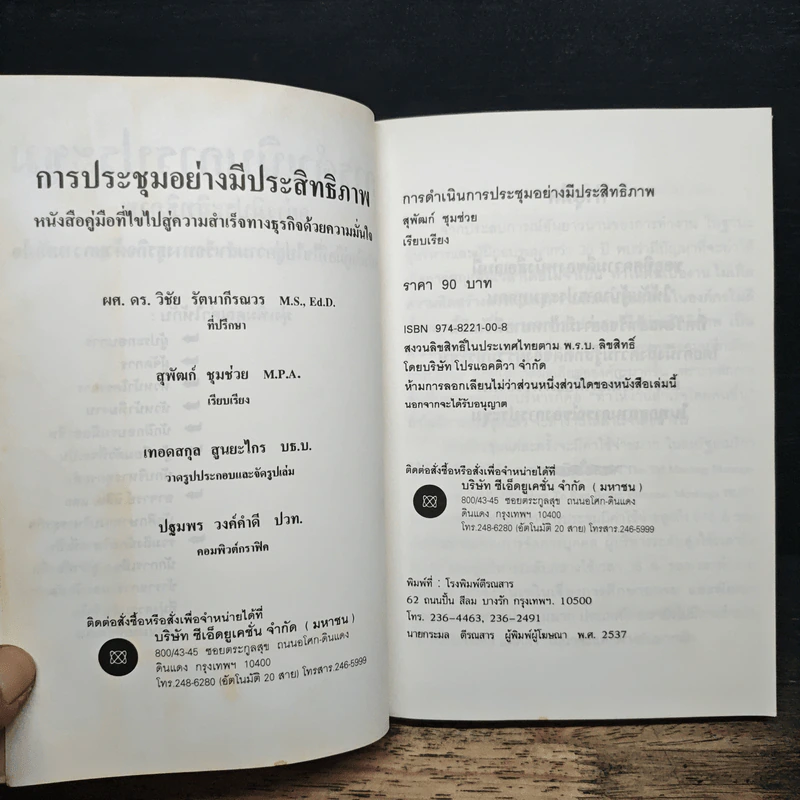 การประชุมอย่างมีประสิทธิภาพ
หนังสือคู่มือที่ไขไปสู่ความสำเร็จทางธุรกิจด้วยความมั่นใจ
ผศ. ดร. วิชัย รัตนากีรณวร M.S., Ed.D.
ที่ปรึกษา
สุพัฒก์ ชุมช่วย M.P.A.
เรียบเรียง
เทอดสกุล สูนยะไกร บธ.บ.
วาดรูปประกอบและจัดรูปเล่ม
ปฐมพร วงค์คำดี ปวท.
คอมพิวต์กราฟิค
ติดต่อสั่งซื้อหรือสั่งเพื่อจำหน่ายได้ที่
บริษัท ซีเอ็ดยูเคชั่น จำกัด ( มหาชน )
800/43-45 ซอยตระกูลสุข ถนนอโศก-ดินแดง
ดินแดง กรุงเทพฯ 10400
โทร.248-6280 (อัตโนมัติ 20 สาย) โทรสาร.246-5999
การดำเนินการประชุมอย่างมีประสิทธิภาพ
สุพัฒก์ ชุมช่วย
เรียบเรียง
ราคา 90 บาท
ISBN 974-8221-00-8
สงวนลิขสิทธิ์ในประเทศไทยตาม พ.ร.บ. ลิขสิทธิ์
โดยบริษัท โปรแอคติวา จำกัด
ห้ามการลอกเลียนไม่ว่าส่วนหนึ่งส่วนใดของหนังสือเล่มนี้
นอกจากจะได้รับอนุญาต
ติดต่อสั่งซื้อหรือสั่งเพื่อจำหน่ายได้ที่
บริษัท ซีเอ็ดยูเคชั่น จำกัด ( มหาชน )
800/43-45 ซอยตระกูลสุข ถนนอโศก-ดินแดง
ดินแดง กรุงเทพฯ 10400
โทร.248-6280 (อัตโนมัติ 20 สาย) โทรสาร.246-5999
พิมพ์ที่ : โรงพิมพ์ตีรณสาร
62 ถนนปั้น สีลม บางรัก กรุงเทพฯ. 10500
โทร. 236-4463, 236-2491
นายกระมล ตีรณสาร ผู้พิมพ์ผู้โฆษณา พ.ศ. 2537